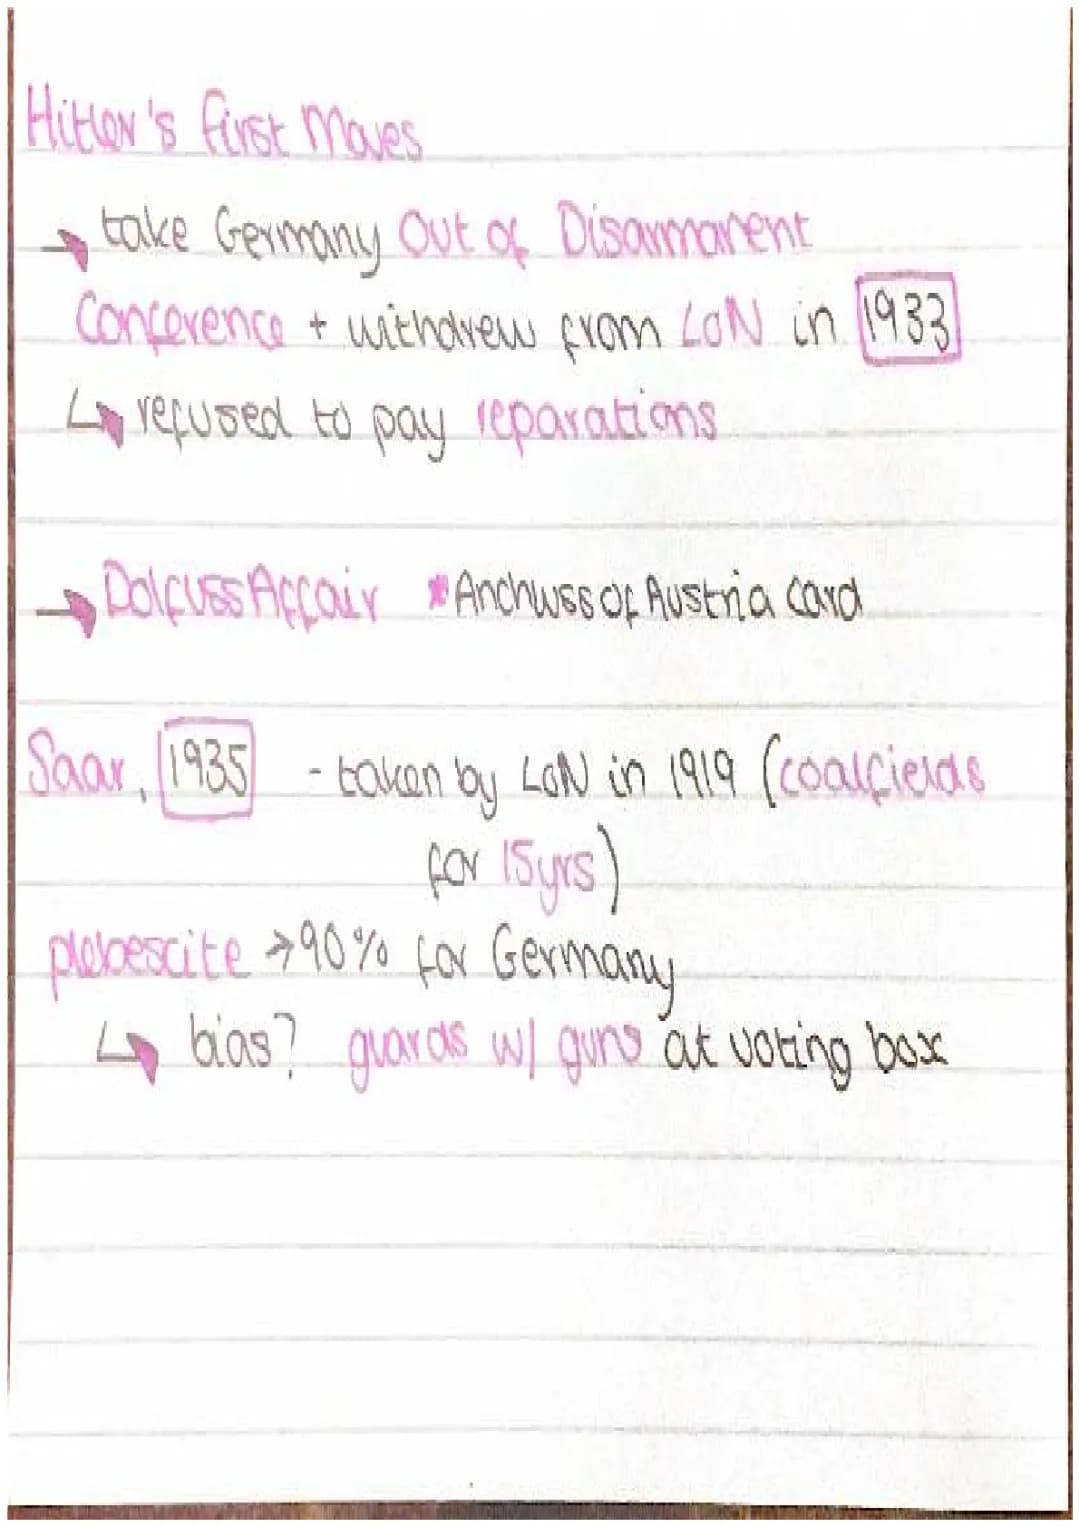 Hitler's first Moves
→ take Germany Out of Disarmament
Conference + withdrew from LoN in 1933
↳ refused to pay reparations
→ Dolfuss Affair *Anchluss of Austria card
Saar, 1935 - taken by LoN in 1919 (coalfields
for 15yrs)
plebescite → 90% for Germany
↳ bias? guards w/ guns at voting box